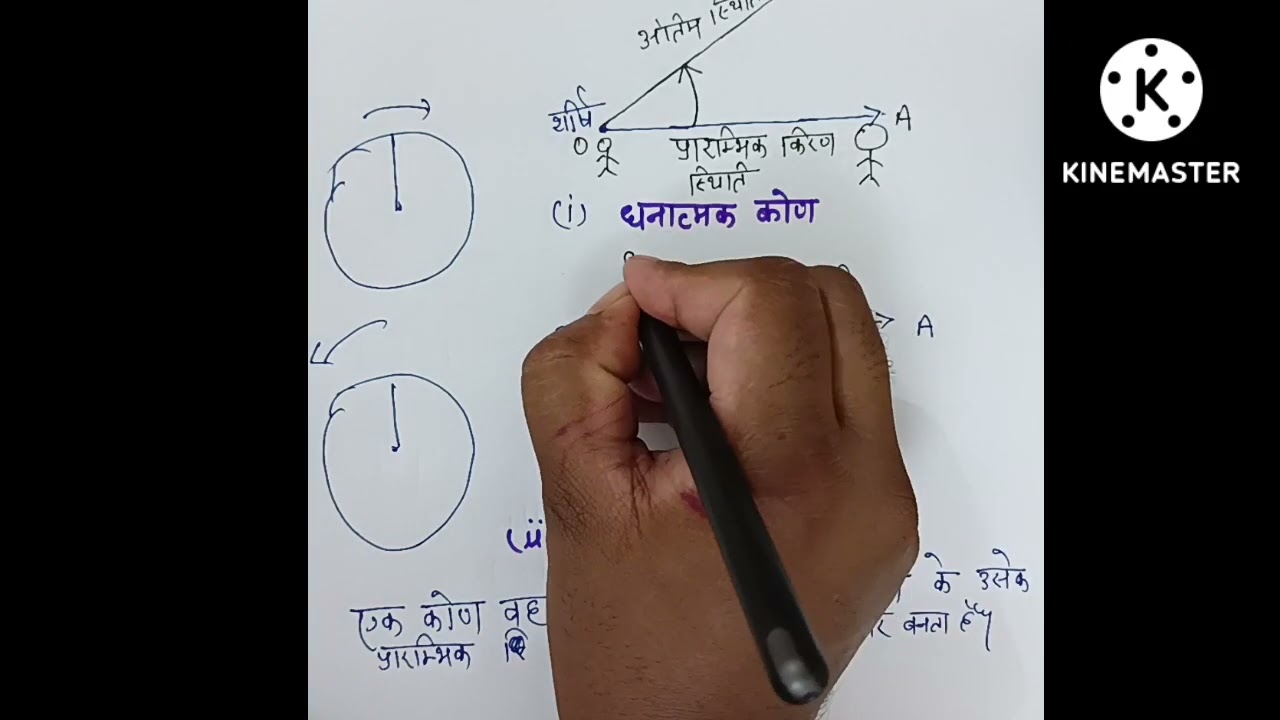 अंतिम स्थिति
शीर्ष
O
A
प्रारम्भिक किरण
स्थिति
(i) धनात्मक कोण
A
(ii
के उसके
एक कोण वह
बनता है
प्रारम्भिक
K
KINEMASTER